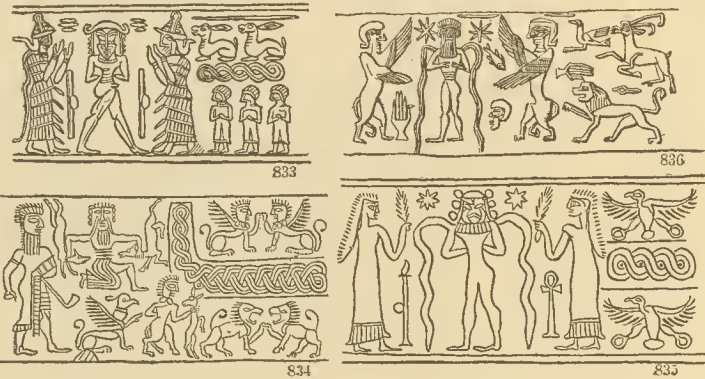 833
836
834
835